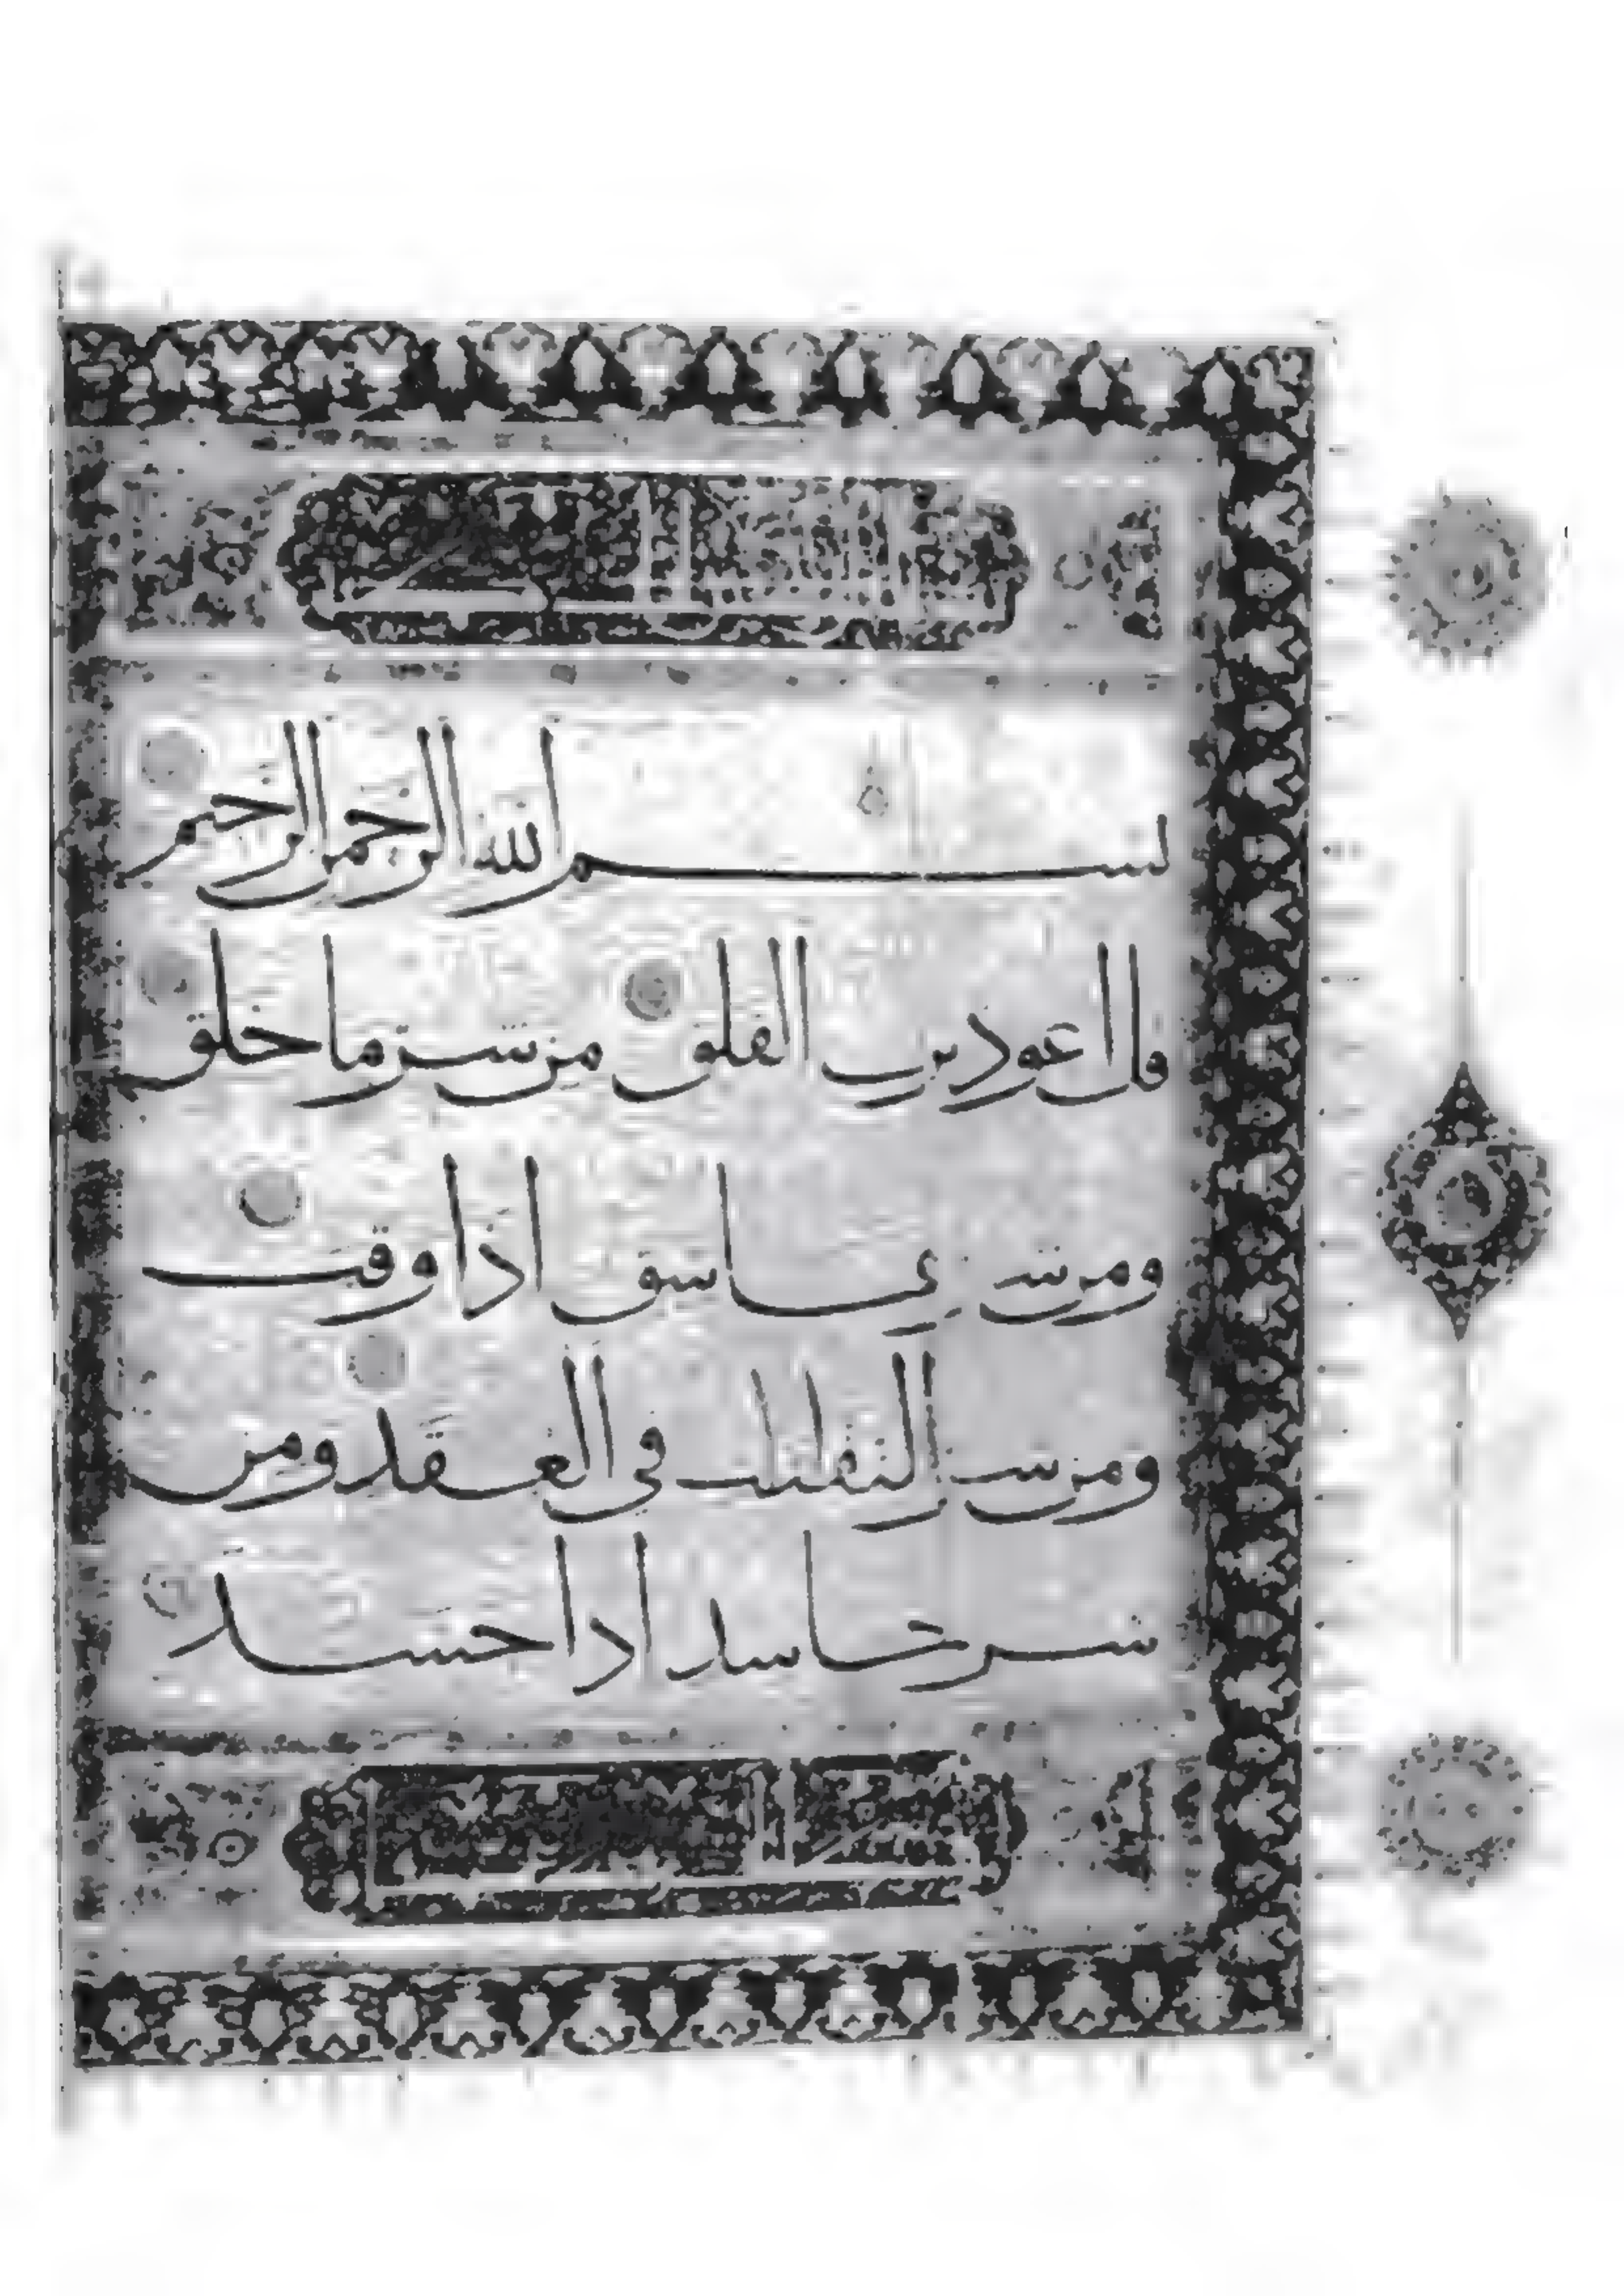 بسم الله الرحمن الرحيم
قل اعوذ برب الفلق من شر ما خلق
ومن شر غاسق اذا وقب
ومن شر النفثت في العقد ومن
شر حاسد اذا حسد